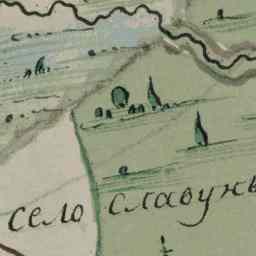 село Славунъ